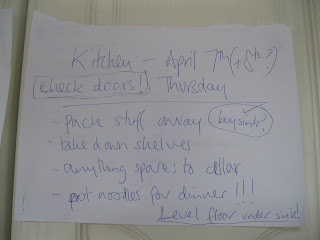 Kitchen - April 7th (+ 8th?)
check doors! Thursday
- pack stuff away (buy sink?)
- take down shelves
- anything spare; to cellar
- pot noodles for dinner !!!
Level floor under sink!